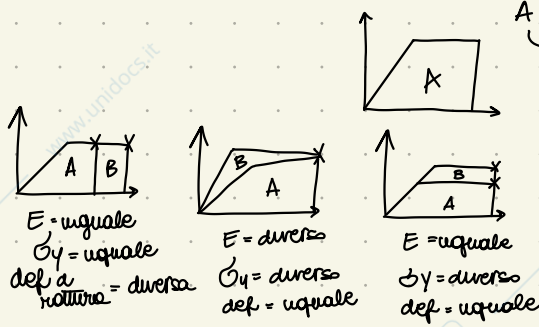 A
A
www.unidocs.it
A
B
B
A
B
A
E = uguale
σy = uguale
def a
rottura = diversa
E = diverso
σy = diverso
def = uguale
E = uguale
σy = diverso
def = uguale